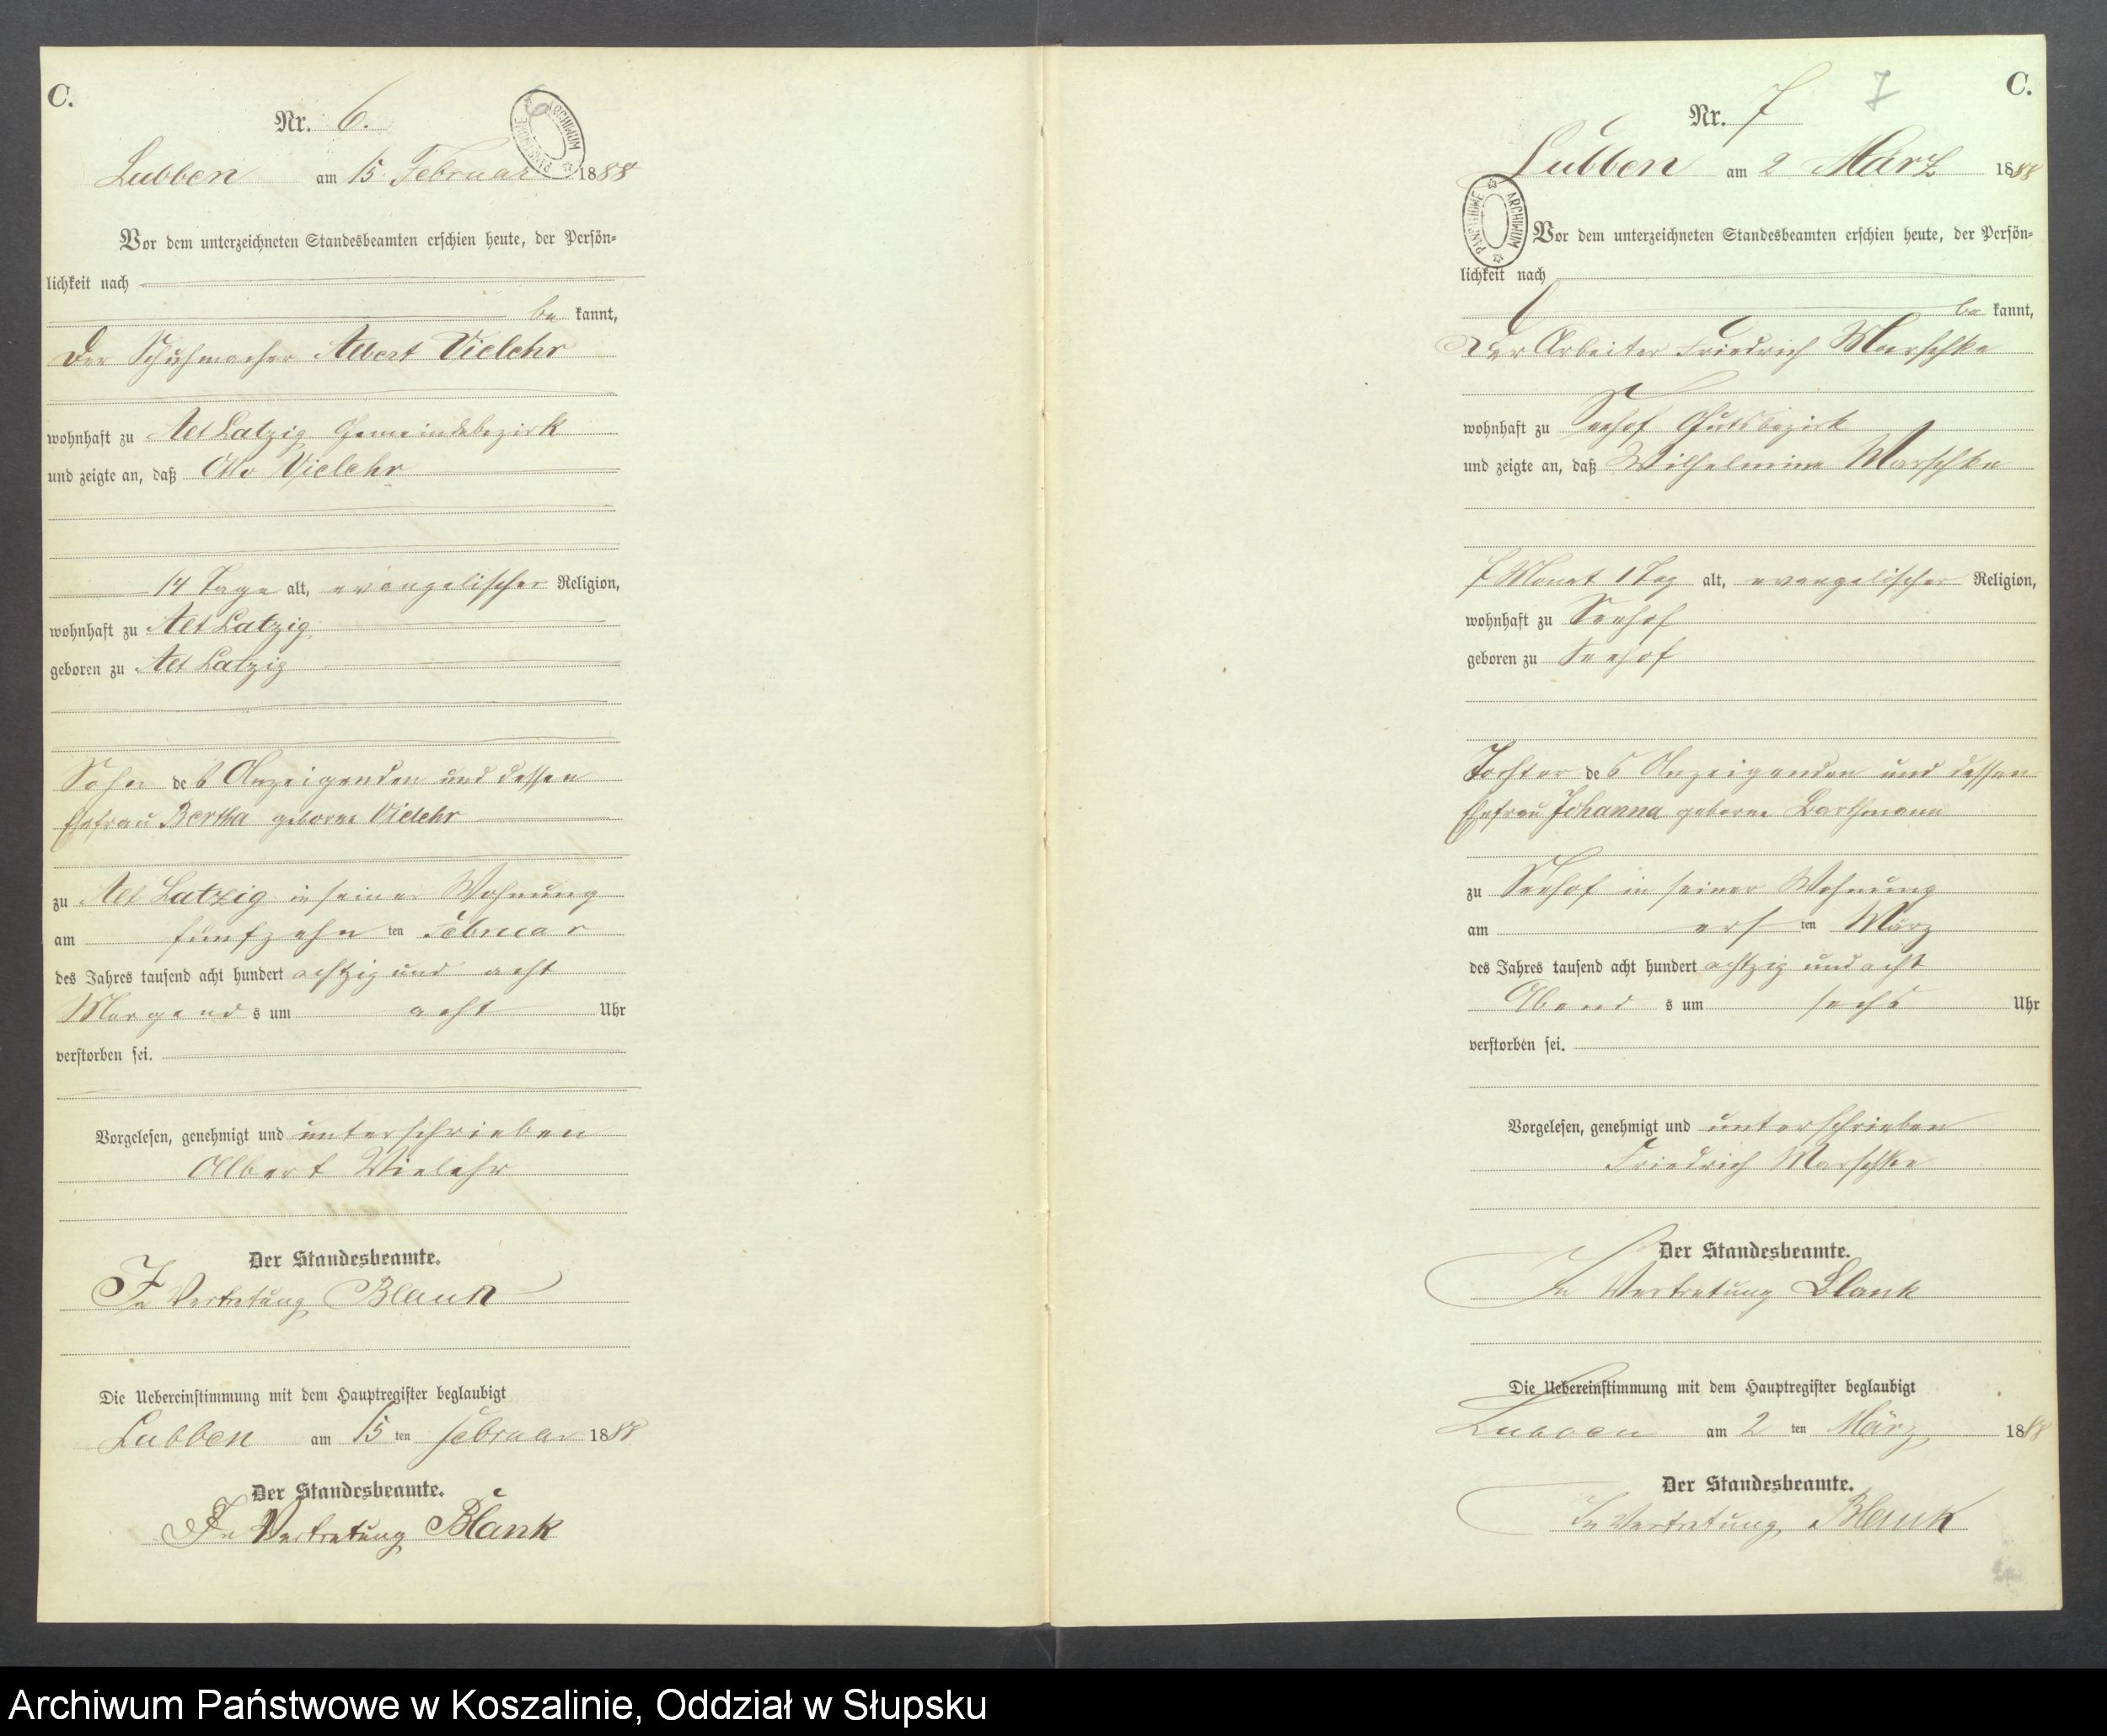 C.
Nr. 6.
Lubben am 15 Februar 1888
Vor dem unterzeichneten Standesbeamten erschien heute, der Persön-
lichkeit nach
be kannt,
Der Schuhmacher Albert Vielehr
wohnhaft zu Alt Latzig Gemeindebezirk
und zeigte an, daß Otto Vielehr
14 Tage alt, evangelischer Religion,
wohnhaft zu Alt Latzig
geboren zu Alt Latzig
Sohn des Anzeigenden und dessen
Ehefrau Bertha geborne Vielehr
zu Alt Latzig in seiner Wohnung
am fünfzehn ten Februar
des Jahres tausend acht hundert achtzig und acht
Morgend s um acht Uhr
verstorben sei.
Vorgelesen, genehmigt und unterschrieben
Albert Vielehr
Der Standesbeamte.
In Vertretung Blank
Die Uebereinstimmung mit dem Hauptregister beglaubigt
Lubben am 15 ten Februar 1888
Der Standesbeamte.
In Vertretung Blank
C.
7
Nr. 7
Lubben am 2 März 1888
Vor dem unterzeichneten Standesbeamten erschien heute, der Persön-
lichkeit nach
be kannt,
Der Arbeiter Friedrich Marschke
wohnhaft zu Seehof Gutsbezirk
und zeigte an, daß Wilhelmine Marschke
7 Monat 1 Tag alt, evangelischer Religion,
wohnhaft zu Seehof
geboren zu Seehof
Tochter des Anzeigenden und dessen
Ehefrau Johanna geborne Barthmann
zu Seehof in seiner Wohnung
am ers ten März
des Jahres tausend acht hundert achtzig und acht
Abend s um sechs Uhr
verstorben sei.
Vorgelesen, genehmigt und unterschrieben
Friedrich Marschke
Der Standesbeamte.
In Vertretung Blank
Die Uebereinstimmung mit dem Hauptregister beglaubigt
Lubben am 2 ten März 1888
Der Standesbeamte.
In Vertretung Blank
ARCHIWUM PAŃSTWOWE
ARCHIWUM PAŃSTWOWE
Archiwum Państwowe w Koszalinie, Oddział w Słupsku